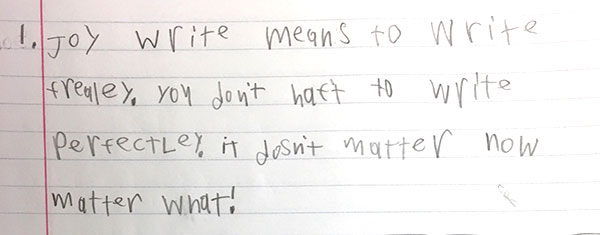 1. Joy write means to write
frealey. you don't haft to write
perfectley. it dosn't matter now
matter what!